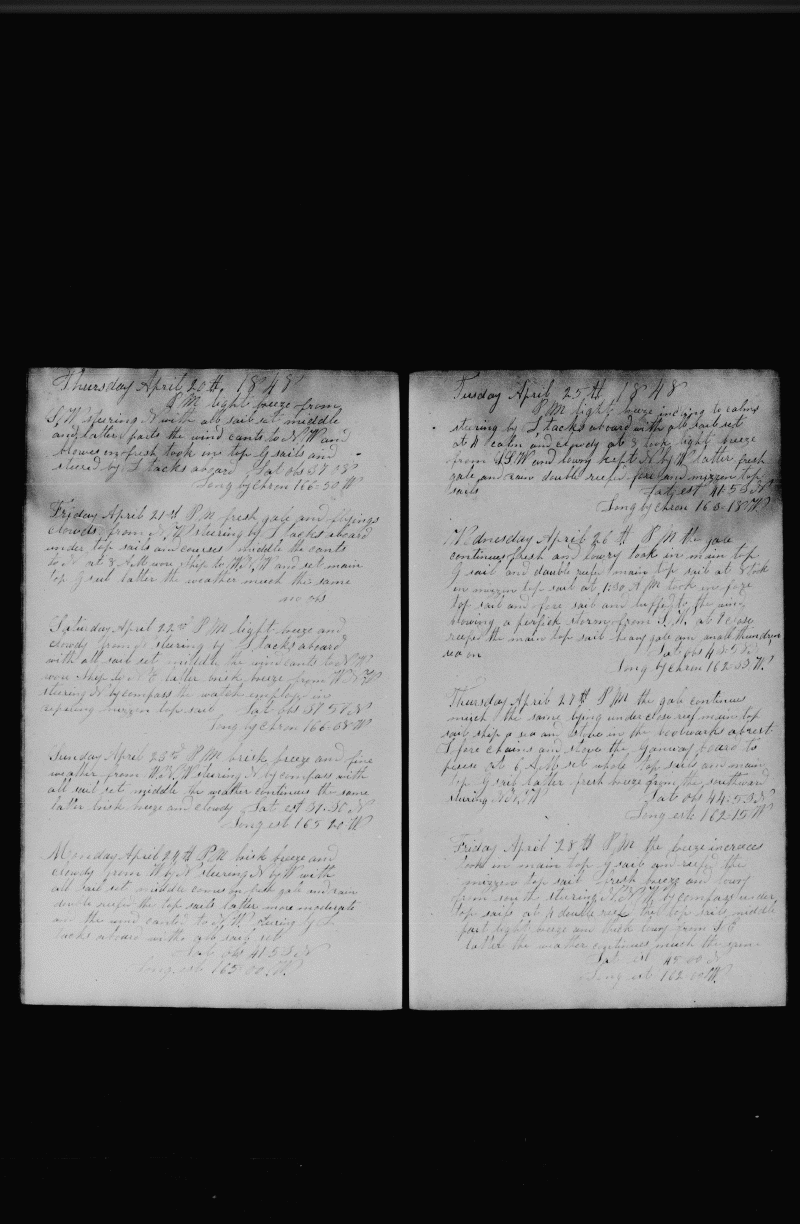 Thursday April 20th, 1848
P M light breeze from
S, W steering N with all sail set middle
and latter parts the wind cants to N W and
blowes on fresh took in top G sails and
steered by L tacks aboard Lat obs 37 18 N
Long by Chron 166-50 W
Friday April 21st P M fresh gale and flyings
clowds from N, W steering by L tacks aboard
under top sails and courses middle the cants
to N at 8 A M wore ship to W N W and set main
top G sail latter the weather much the same
no obs
Saturday April 22nd P M light breeze and
clowdy from steering by L tacks aboard
with all sail set middle the wind cants to N W
wore ship to N E latter brisk breeze from W N W
steering N by compass the watch employe in
repairing mizzen top sail Lat obs 39 57 N
Long by Chron 166-58 W
Sunday April 23rd P M brisk breeze and fine
weather from W N W steering N by compass with
all sail set middle the weather continues the same
latter brisk breeze and clowdy Lat est 39-30 N
Long est 165 20 W
Monday April 24th P M brisk breeze and
clowdy from W by N steering N by W with
all sail set middle comes on fresh gale and rain
double reefed the top sails latter more moderate
and the wind canted to N W stering by L
tacks aboard with all sail set
Lat obs 41 53 N
Long est 165 00 W
Tusday April 25th 1848
P M light breeze incling to calms
steering by L tacks aboard with all sail set
at 4 calm and clowdy at 8 took light breeze
from S S W and lowry kept N by W latter fresh
gale and rain double reefed fore and mizzen top
sails Lat est 41-55 N
Long by Chron 163-18 W
Wednesday April 26th P M the gale
continues fresh and lowry took in main top
G sail and double reefed main top sail at 8 took
in mizzen top sail at 1:30 A M took in fore
top sail and fore sail and luffed to the wind
blowing a perfick storm from S, W, at 8 close
reefed the main top sail heavy gale and small thundrus
sea on Lat obs 43-55 N
Long by Chron 162-33 W
Thursday April 27th P M the gale continues
much the same lying under close reef main top
sail ship a sea and stove in the boolwarks abrest
L fore chains and stove the ganway board to
pieces at 6 A M set whole top sails and main
top G sail latter fresh breeze from the southward
stering N N W Lat obs 44-53 N
Long est 162-15 W
Friday April 28th P M the breeze increces
took in main top G sail and reefed the
mizzen top sail fresh breeze and lowry
from south stering N N W by compass under
top sails at 4 double reef the top sails middle
part light breeze and thick lowry from S E
latter the weather continues much the same
Lat est 45 00 N
Long est 162 00 W